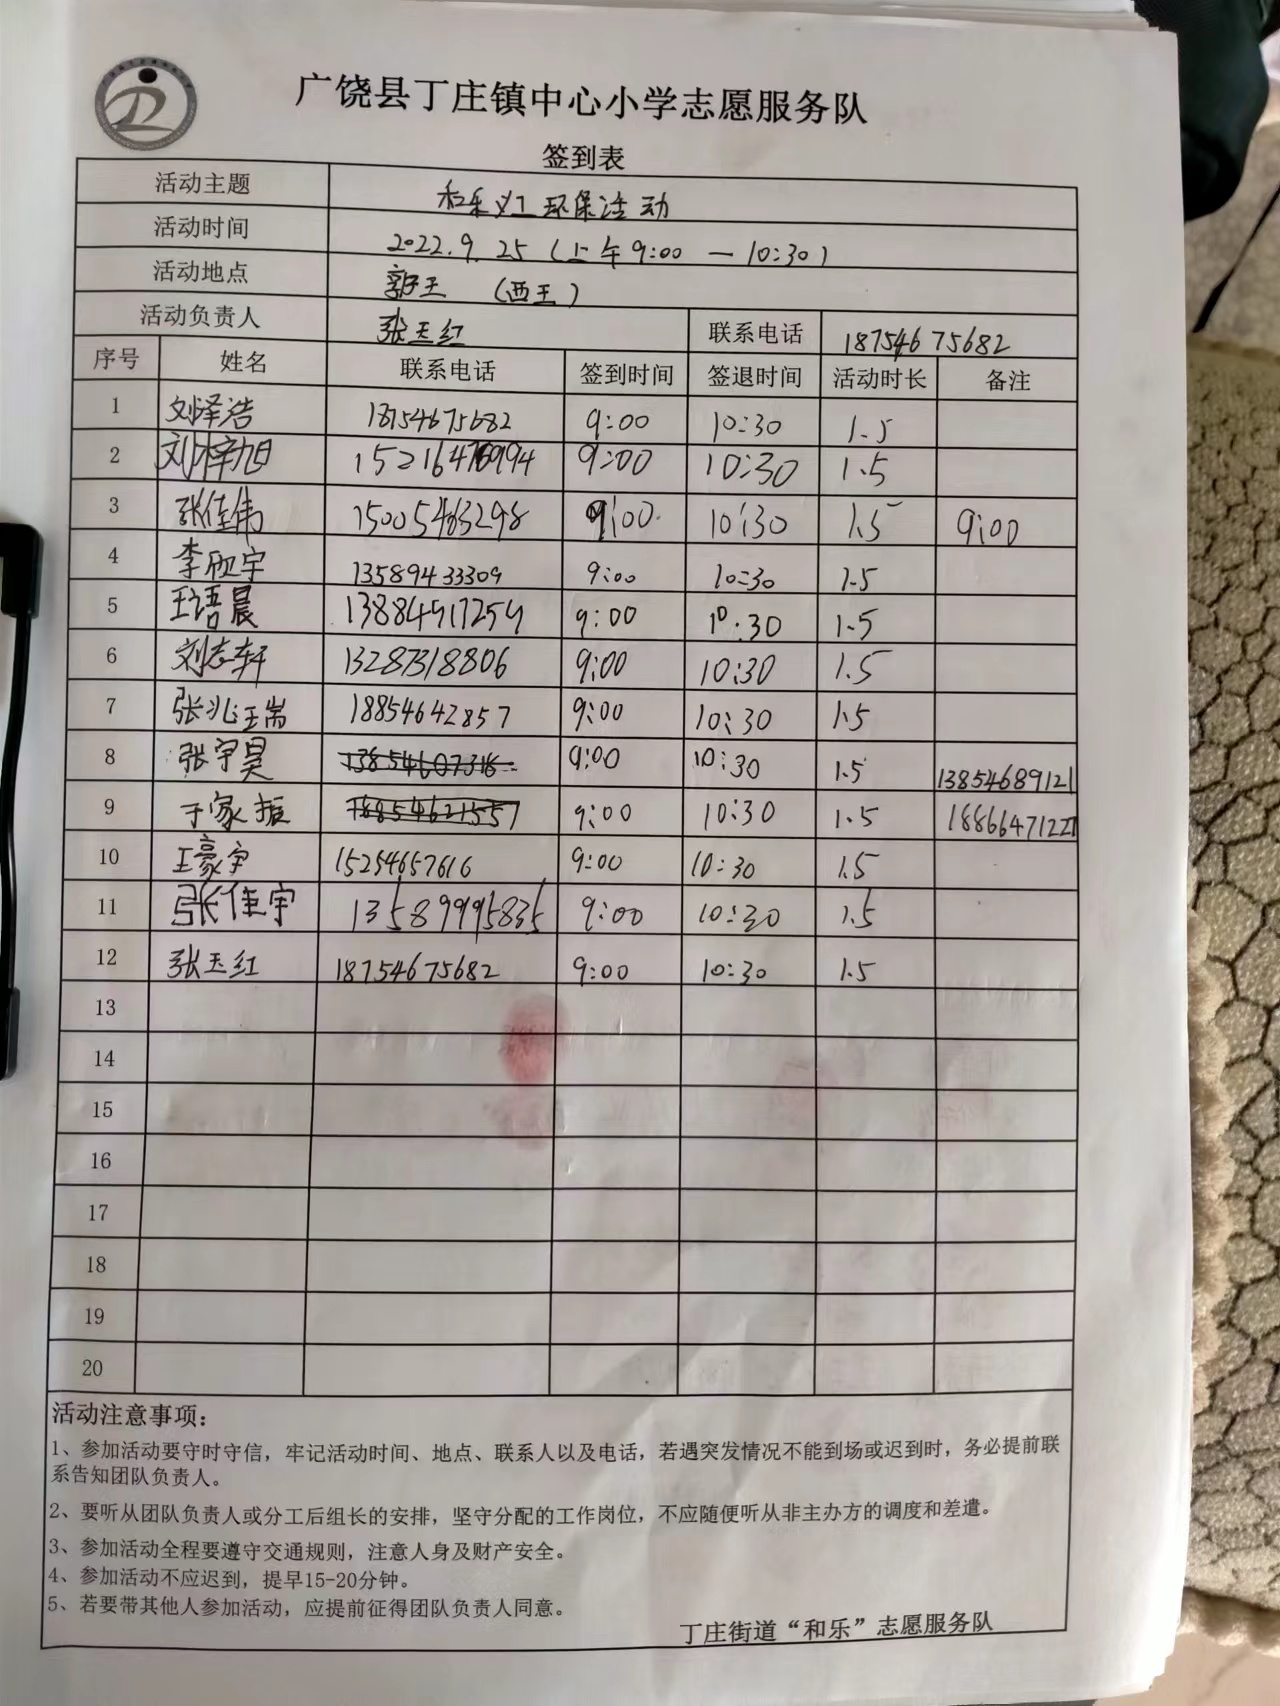 广饶县丁庄镇中心小学志愿服务队
签到表
活动主题 和乐义工环保活动
活动时间 2022.9.25（上午9:00 — 10:30）
活动地点 郭王 （西王）
活动负责人 张玉红 联系电话 18754675682
序号 姓名 联系电话 签到时间 签退时间 活动时长 备注
1 刘泽浩 18754675682 9:00 10:30 1.5
2 刘梓旭 9:00 10:30 1.5
3 张佳伟 15005463298 9:00 10:30 1.5 9:00
4 李欣宇 13589433309 9:00 10:30 1.5
5 王语晨 13884917259 9:00 10:30 1.5
6 刘志轩 13287318806 9:00 10:30 1.5
7 张兆瑞 18854642857 9:00 10:30 1.5
8 张宇昊 9:00 10:30 1.5 13854689121
9 于家振 9:00 10:30 1.5 18866471221
10 王豪宇 15254657616 9:00 10:30 1.5
11 张佳宇 13589995835 9:00 10:30 1.5
12 张玉红 18754675682 9:00 10:30 1.5
13
14
15
16
17
18
19
20
活动注意事项：
1、参加活动要守时守信，牢记活动时间、地点、联系人以及电话，若遇突发情况不能到场或迟到时，务必提前联
系告知团队负责人。
2、要听从团队负责人或分工后组长的安排，坚守分配的工作岗位，不应随便听从非主办方的调度和差遣。
3、参加活动全程要遵守交通规则，注意人身及财产安全。
4、参加活动不应迟到，提早15-20分钟。
5、若要带其他人参加活动，应提前征得团队负责人同意。
丁庄街道“和乐”志愿服务队